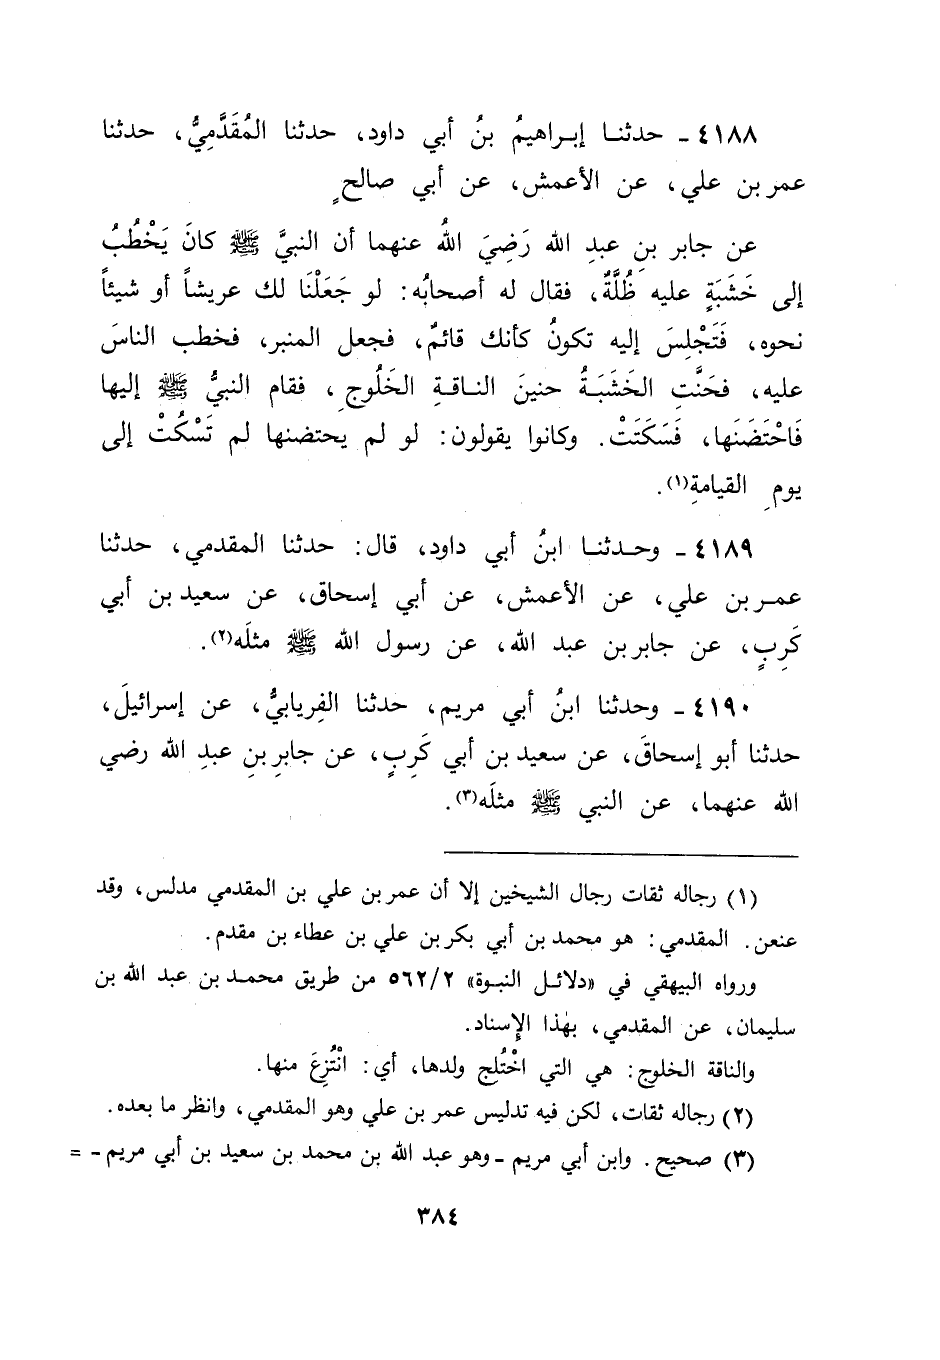 ٤١٨٨ ـ حدثنـا إبـراهيمُ بنُ أبي داود، حدثنا المُقَدَّمِيُّ، حدثنا
عمر بن علي، عن الأعمش، عن أبي صالحٍ
عن جابر بنِ عبدِ الله رَضِيَ اللهُ عنهما أن النبيَّ ﷺ كانَ يَخْطُبُ
إلى خَشَبَةٍ عليه ظُلَّةٌ، فقال له أصحابُه: لو جَعَلْنَا لك عريشاً أو شيئاً
نحوه، فَتَجْلِسَ إليه تكونُ كأنك قائمٌ، فجعل المنبر، فخطب الناسَ
عليه، فحَنَّتِ الخَشَبَـةُ حنينَ النـاقـةِ الخَلُوجِ، فقام النبيُّ ﷺ إليها
فَاحْتَضَنَها، فَسَكَتَتْ. وكانوا يقولون: لو لم يحتضنها لم تَسْكُتْ إلى
يومِ القيامةِ(١).
٤١٨٩ ـ وحـدثنـا ابنُ أبي داود، قال: حدثنا المقدمي، حدثنا
عمـر بن علي، عن الأعمش، عن أبي إسحاق، عن سعيد بن أبي
كَرِبٍ، عن جابر بن عبد الله، عن رسول الله ﷺ مثلَه(٢).
٤١٩٠ ـ وحدثنا ابنُ أبي مريم، حدثنا الفِريابيُّ، عن إسرائيلَ،
حدثنا أبو إسحاقَ، عن سعيد بن أبي كَرِبٍ، عن جابرِ بنِ عبدِ الله رضي
الله عنهما، عن النبي ﷺ مثلَه(٣).
(١) رجاله ثقات رجال الشيخين إلا أن عمر بن علي بن المقدمي مدلس، وقد
عنعن. المقدمي: هو محمد بن أبي بكر بن علي بن عطاء بن مقدم.
ورواه البيهقي في «دلائـل النبـوة» ٥٦٢/٢ من طريق محمـد بن عبد الله بن
سليمان، عن المقدمي، بهٰذا الإسناد.
والناقة الخلوج: هي التي اخْتُلِج ولدها، أي: انْتُزِعَ منها.
(٢) رجاله ثقات، لكن فيه تدليس عمر بن علي وهو المقدمي، وانظر ما بعده.
(٣) صحيح. وابن أبي مريم ـ وهو عبد الله بن محمد بن سعيد بن أبي مريم ـ =
٣٨٤